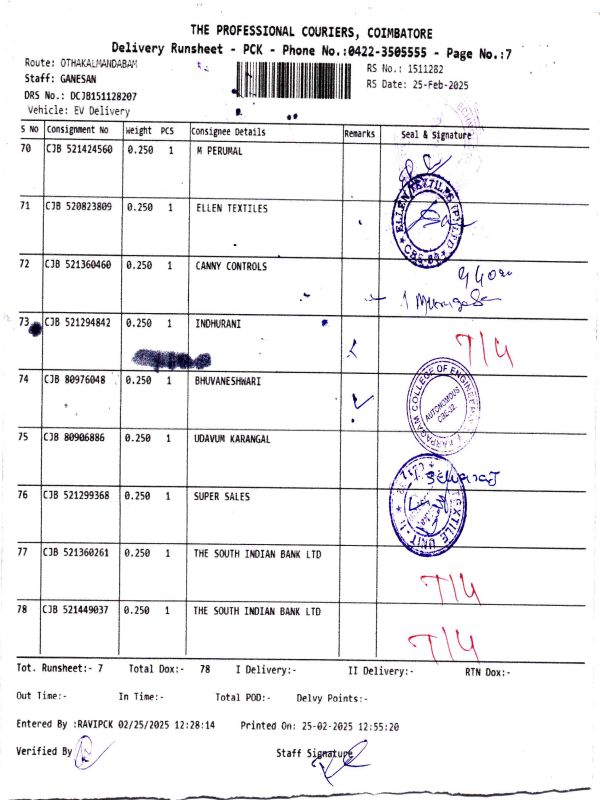 THE PROFESSIONAL COURIERS, COIMBATORE
Delivery Runsheet - PCK - Phone No.:0422-3505555 - Page No.:7
Route: OTHAKALMANDABAM
RS No.: 1511282
Staff: GANESAN
RS Date: 25-Feb-2025
DRS No.: DCJB151128207
Vehicle: EV Delivery
S No Consignment No Weight PCS Consignee Details Remarks Seal & Signature
70 CJB 521424560 0.250 1 M PERUMAL
71 CJB 520823809 0.250 1 ELLEN TEXTILES
ELLEN TEXTILES (P) LTD
72 CJB 521360460 0.250 1 CANNY CONTROLS
73 CJB 521294842 0.250 1 INDHURANI T/4
74 CJB 80976048 0.250 1 BHUVANESHWARI
KARPAGAM COLLEGE OF ENGINEERING
AUTONOMOUS
CBE-32
75 CJB 80906886 0.250 1 UDAVUM KARANGAL
76 CJB 521299368 0.250 1 SUPER SALES
TEXTILE UNIT-II
77 CJB 521360261 0.250 1 THE SOUTH INDIAN BANK LTD T/4
78 CJB 521449037 0.250 1 THE SOUTH INDIAN BANK LTD T/4
Tot. Runsheet:- 7 Total Dox:- 78 I Delivery:- II Delivery:- RTN Dox:-
Out Time:- In Time:- Total POD:- Delvy Points:-
Entered By :RAVIPCK 02/25/2025 12:28:14 Printed On: 25-02-2025 12:55:20
Verified By Staff Signature